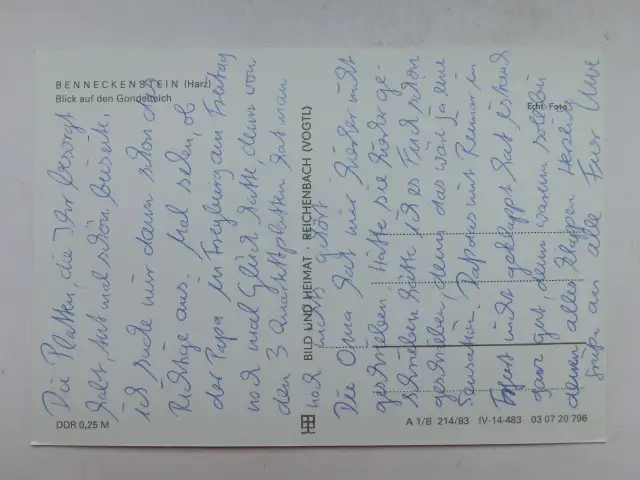 BENNECKENSTEIN (Harz)
Blick auf den Gondelteich
Echt Foto
BILD UND HEIMAT · REICHENBACH (VOGTL)
DDR 0,25 M
A 1/8 214/83 IV-14-483 03 07 20 796
Die Platten, die Ihr besorgt
habt, tut mal schön beiseite,
ich suche mir dann schon das
Richtige aus. Mal sehen, ob
der Papa in Freyburg am Freitag
noch mal Glück hatte, denn von
den 3 Quartettplatten hat man
noch nichts gehört
Die Oma hat mir hierher nicht
geschrieben. Hätte sie hierher ge-
schrieben hätte ich es Euch schon
geschrieben, denn das wär ja eine
Sensation. Daß das mit Reimar in
Erfurt nicht geklappt hat ist
ganz gut, denn warum soll
denn alles klappen Herzliche
Grüße an alle Euer Uwe